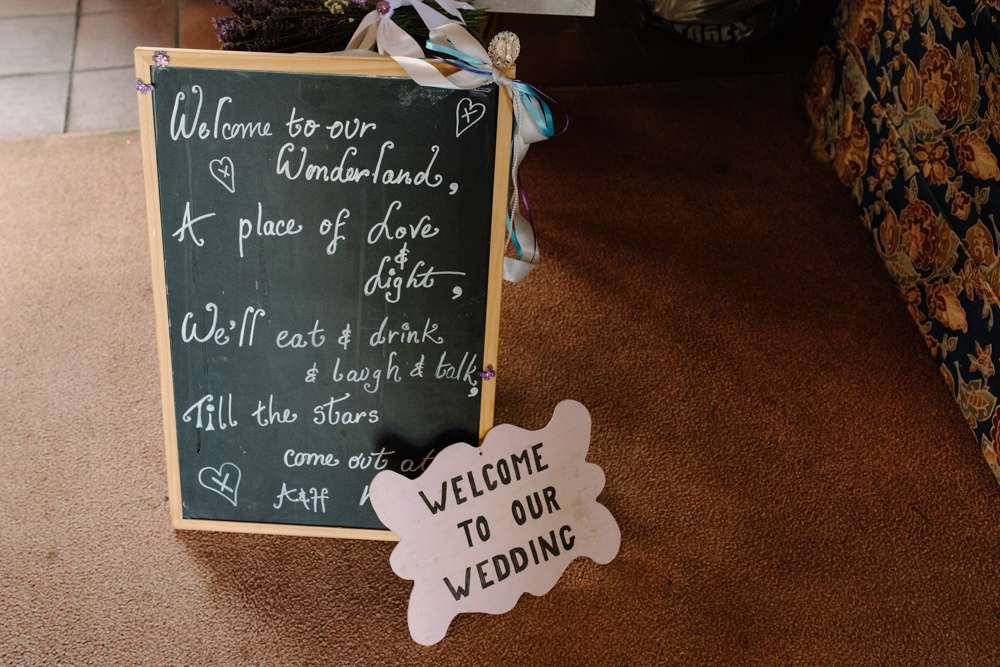 Welcome to our
Wonderland,
A place of Love
&
Light,
We'll eat & drink
& laugh & talk,
Till the stars
come out at
A&H
WELCOME
TO OUR
WEDDING